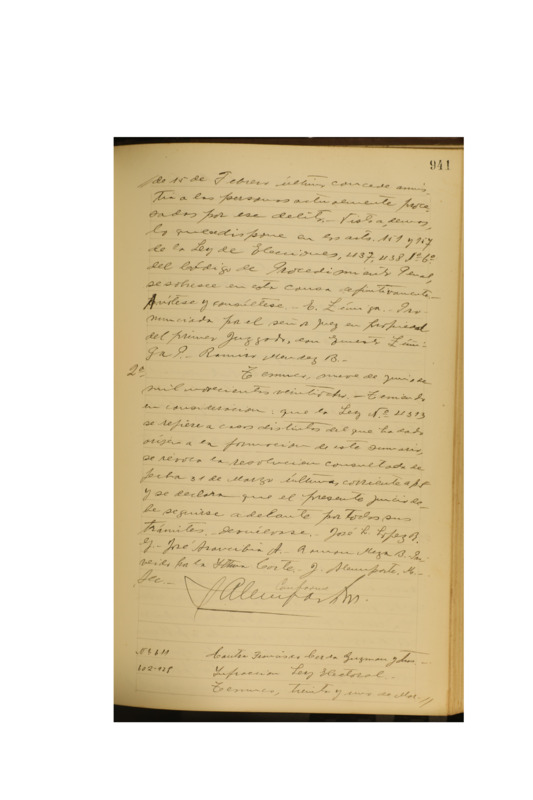 941
de 15 de Febrero último concede amnis-
tía a las personas actualmente proce-
sadas por ese delito,- Visto, además,
lo que dispone en los arts. 151 y 157
de la Ley de Elecciones, 437, 438 Nº 6º
del Código de Procedimiento Penal,
se sobresee en esta causa definitivamente.-
Anótese y consúltese.- E. Zúñiga.- Pro-
nunciada por el señor Juez en propiedad
del primer Juzgado, don Ernesto Zúñi-
ga P.- Romero Méndez B.-
2ª Temuco, nueve de junio de
mil novecientos veintiocho.- Tomando
en consideración: que la Ley Nº 4313
se refiere a casos distintos del que ha dado
origen a la formación de este sumario,
se revoca la resolución consultada de
fecha 31 de Marzo último, corriente a fs
y se declara que el presente juicio de-
be seguirse adelante por todos sus
trámites. Devuélvase.- José L. López
José Aravena A.- Ramón Meza B. Pro-
veído por la Iltma Corte.- J. Alemparte, R.-
Sec.-
Conforme
Alemparte
Contra Francisco Cerda Guzmán y
Infracción Ley Electoral.-
Temuco, treinta y uno de Mar-